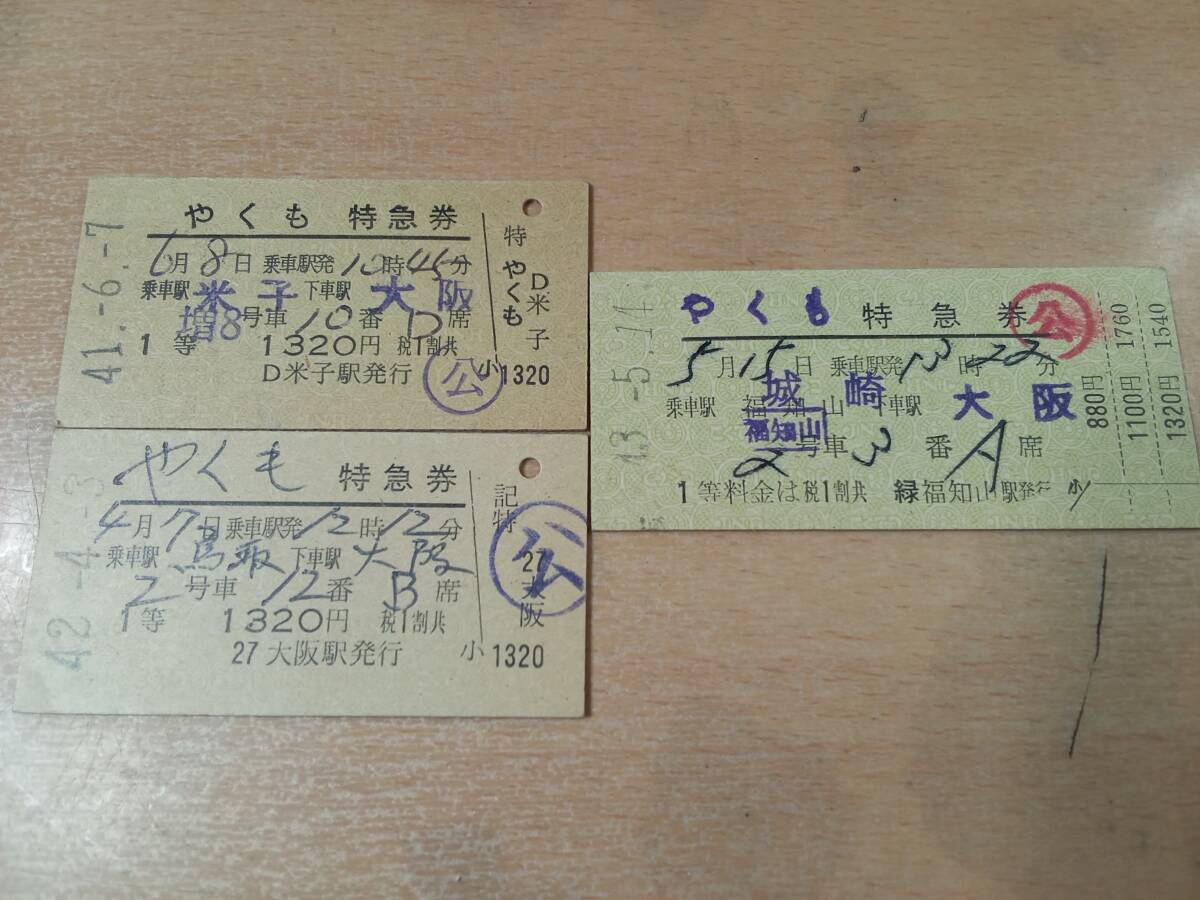 やくも 特急券
6月8日 乗車駅発10時45分
乗車駅 米子 下車駅 大阪
増8号車 10番 D席
1等 1320円 税1割共
D米子駅発行
公
特 やくも
D米子
小1320
41.-6.-7
やくも 特急券
4月7日 乗車駅発12時12分
乗車駅 鳥取 下車駅 大阪
2号車 12番 B席
1等 1320円 税1割共
27大阪駅発行
記特
27大阪
公
小1320
42-4-3
やくも 特急券
公
5月15日 乗車駅発13時22分
城崎
乗車駅 福知山 下車駅 大阪
福知山
2号車 3番 A席
1等料金は税1割共 緑福知山駅発行
小
43-5.14
880円
1100円 1760
1320円 1540